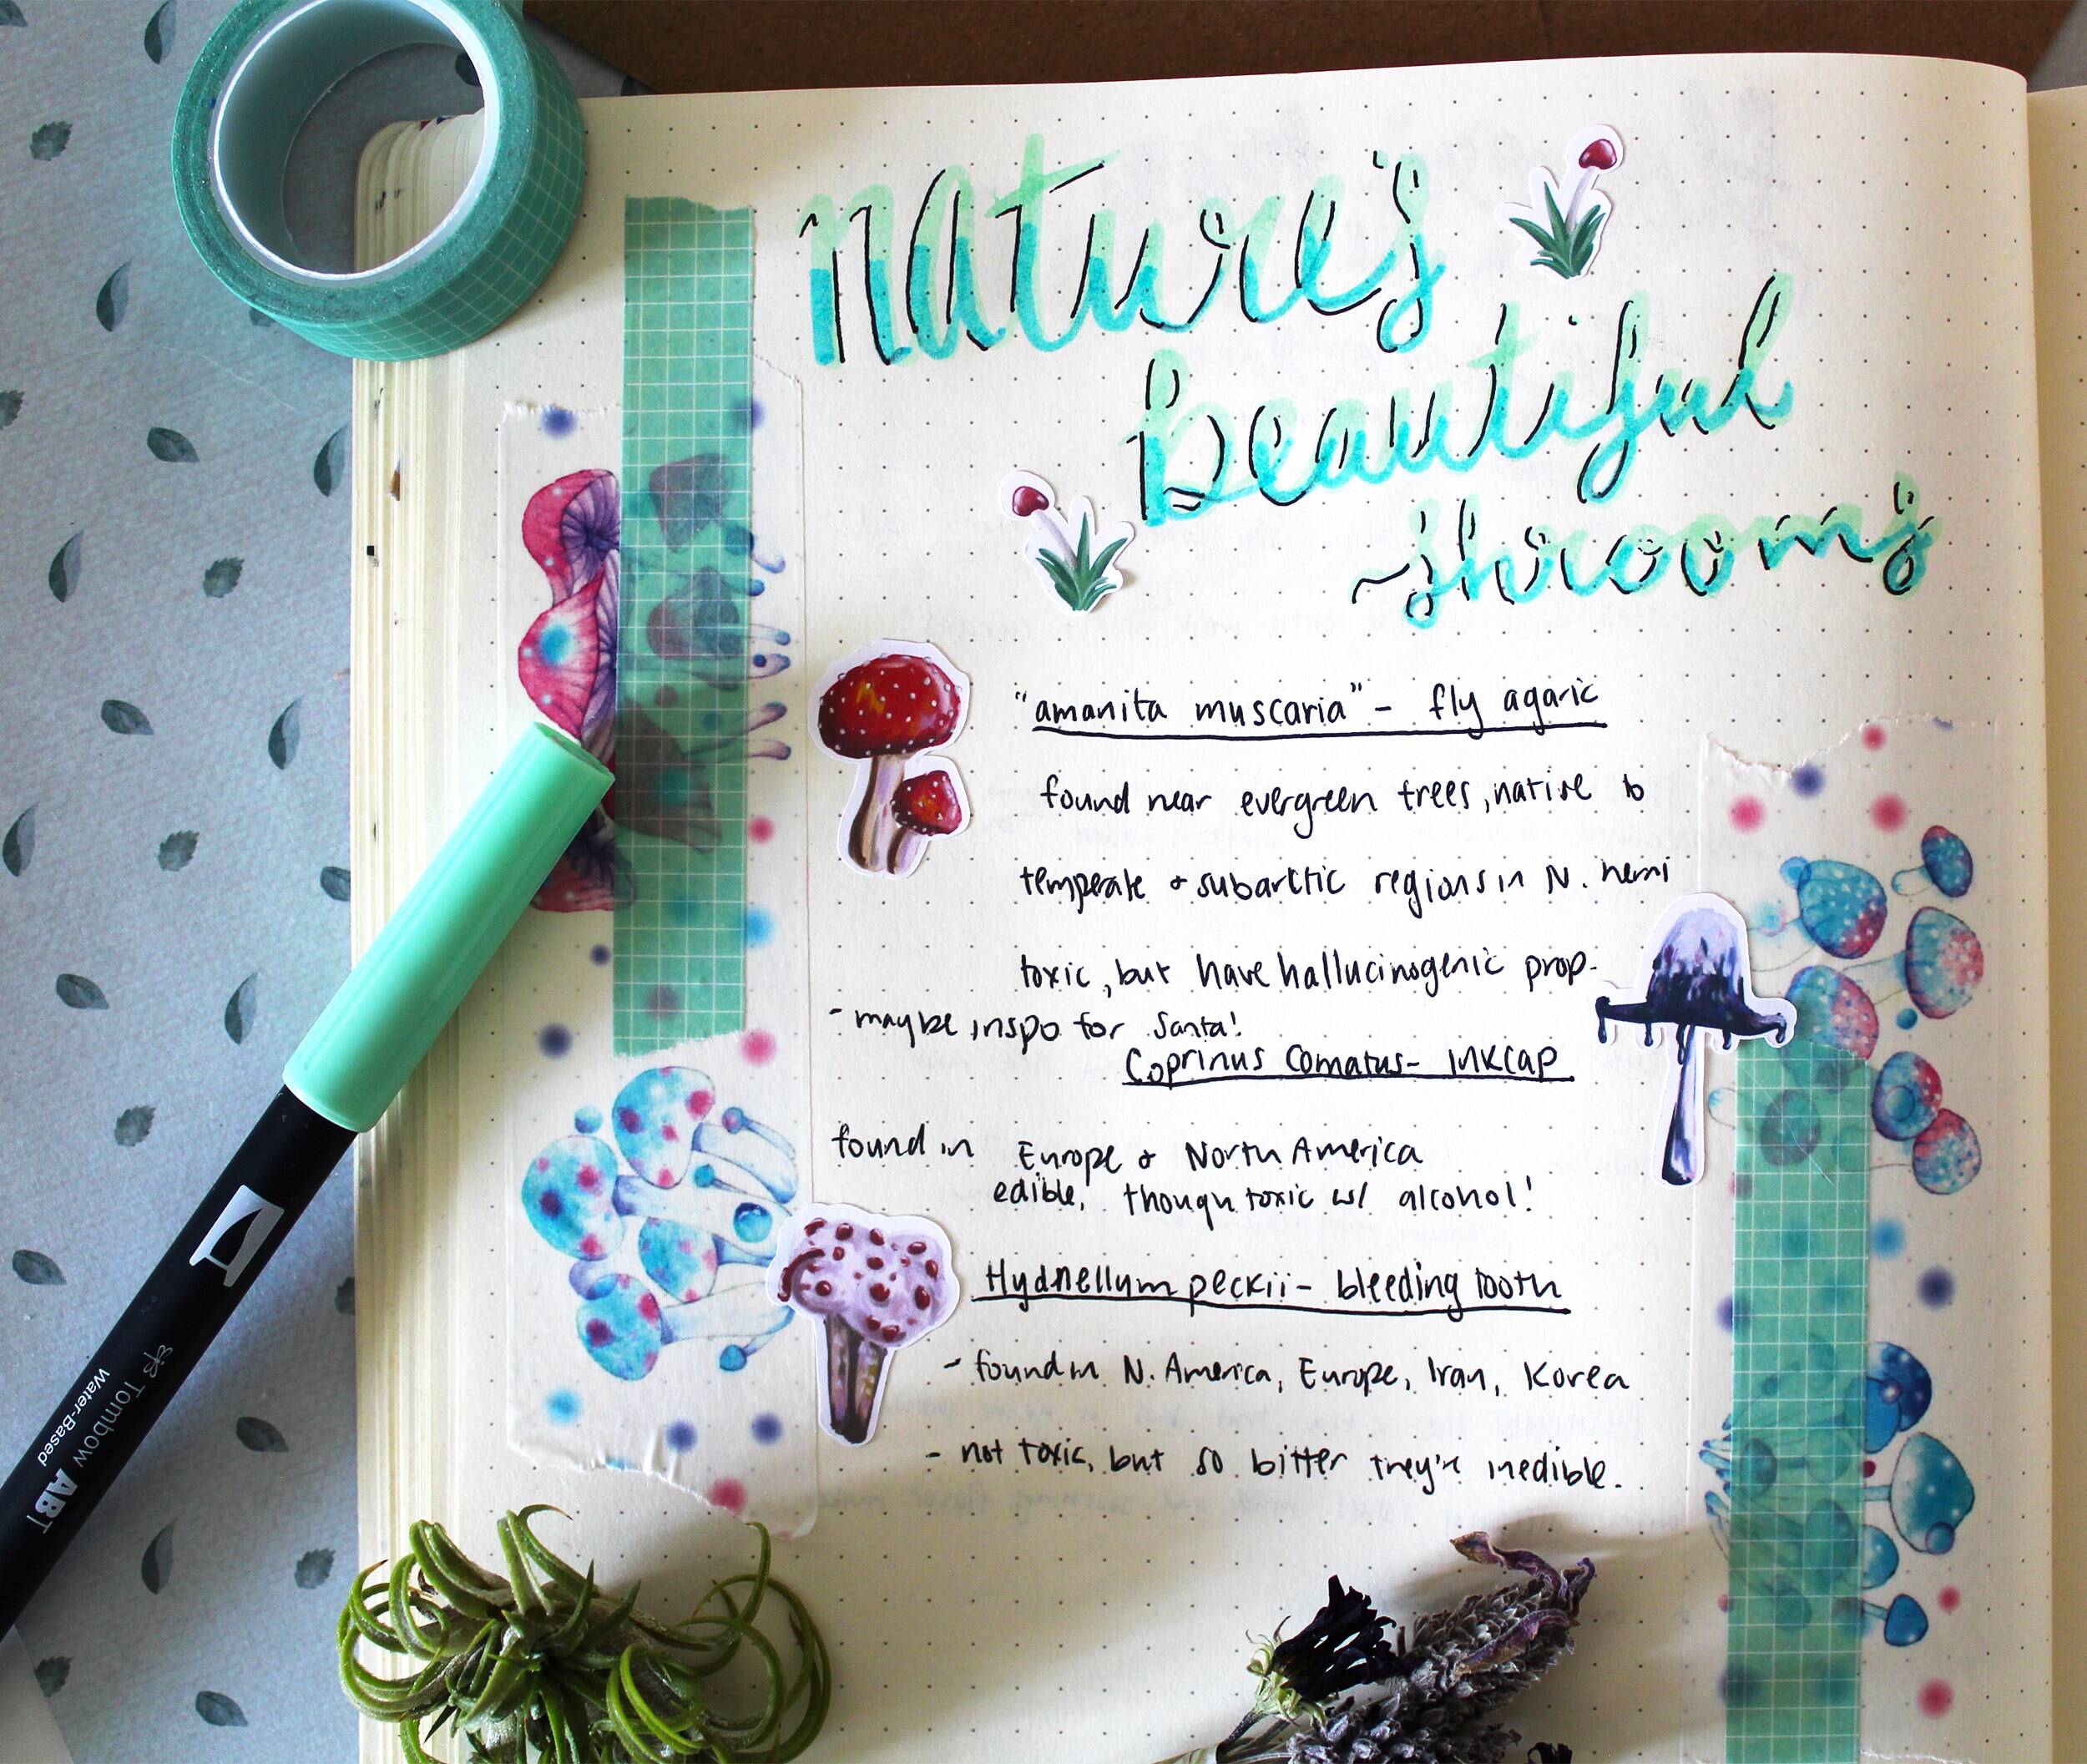 nature's
beautiful
shrooms
"amanita muscaria" - fly agaric
found near evergreen trees, native to
temperate & subarctic regions in N. hemi
toxic, but have hallucinogenic prop.
- maybe inspo for Santa!
Coprinus Comatus - inkcap
found in Europe & North America
edible, though toxic w/ alcohol!
Hydnellum peckii - bleeding tooth
- found in N. America, Europe, Iran, Korea
- not toxic, but so bitter they're inedible.
Tombow ABT
Water-Based